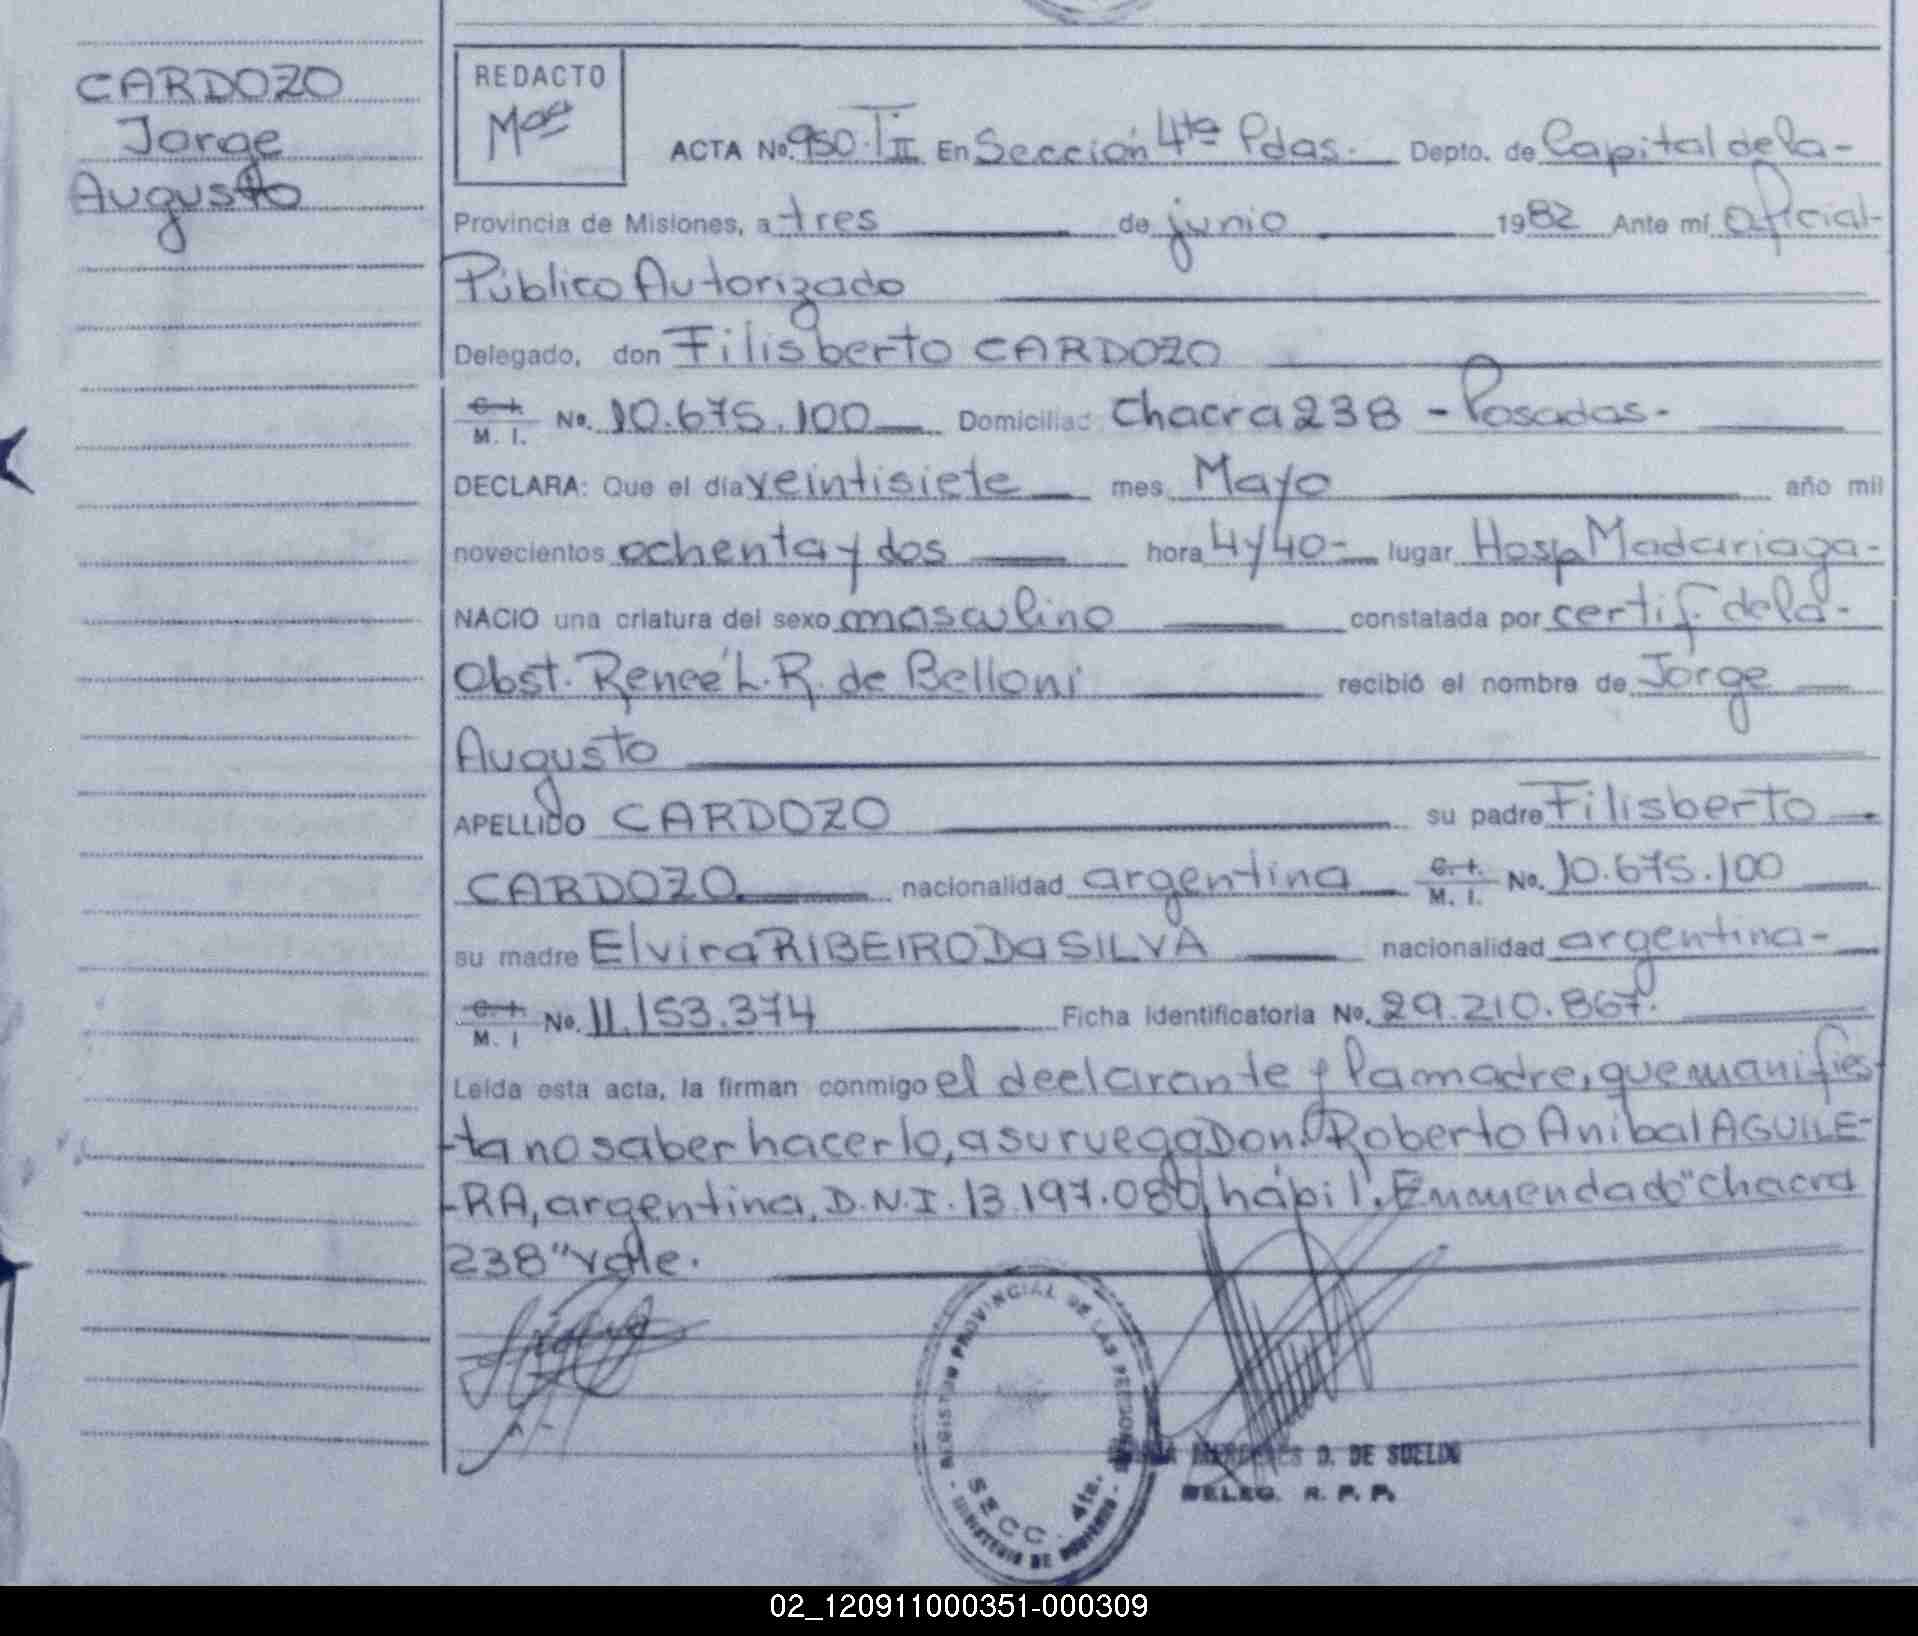 CARDOZO
Jorge
Augusto
REDACTO
ACTA No. 950. T II En Sección 4ta Pdas. Depto. de Capital de la-
Provincia de Misiones, a tres de junio 1982 Ante mí Oficial-
Público Autorizado
Delegado, don Filisberto CARDOZO
C. I. M. I. No. 10.675.100 Domiciliad Chacra 238 - Posadas-
DECLARA: Que el día veintisiete mes Mayo año mil
novecientos ochenta y dos hora 4 y 40- lugar Hosp Madariaga-
NACIO una criatura del sexo masculino constatada por certif. de la-
Obst. Reneé L. R. de Belloni recibió el nombre de Jorge
Augusto
APELLIDO CARDOZO su padre Filisberto
CARDOZO nacionalidad argentina C. I. M. I. No. 10.675.100
su madre Elvira RIBEIRO Da SILVA nacionalidad argentina-
C. I. M. I No. 11.153.374 Ficha Identificatoria No. 29.210.867.
Leída esta acta, la firman conmigo el declarante y la madre, que manifies-
-ta no saber hacerlo, a su ruego Don. Roberto Anibal AGUILE-
-RA, argentina, D.N.I. 13.197.080, hábil. Enmendado "Chacra
238" vale.
REGISTRO PROVINCIAL DE LAS PERSONAS
SECC. 4ta.
MINISTERIO DE GOBIERNO
D. DE SUELDO
DELEG. R. P. P.
02_120911000351-000309